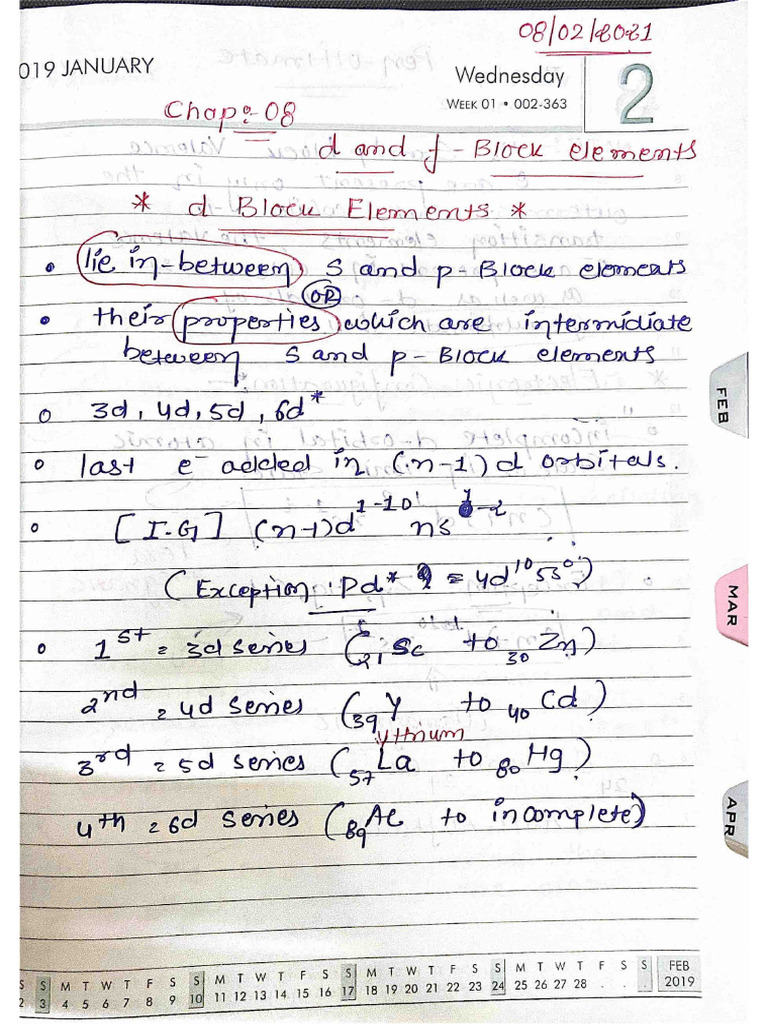 08/02/2021
2019 JANUARY
Wednesday
WEEK 01 • 002-363
2
Chap:-08
d and f - Block elements
* d Block Elements *
• lie in-between s and p-Block elements
(OR)
• their properties which are intermidiate
between s and p-Block elements
o 3d, 4d, 5d, 6d*
o last e⁻ added in (n-1)d orbitals.
o [I.G] (n-1)d¹⁻¹⁰ ns¹⁻²
(Exception: Pd* = 4d¹⁰ 5s⁰)
o 1st = 3d series (₂₁Sc to ₃₀Zn)
2nd = 4d series (₃₉Y to ₄₀Cd)
ythnum
3rd = 5d series (₅₇La to ₈₀Hg)
4th = 6d series (₈₉Ac to incomplete)
FEB
MAR
APR
S S M T W T F S S M T W T F S S M T W T F S S M T W T F S S FEB
2 3 4 5 6 7 8 9 10 11 12 13 14 15 16 17 18 19 20 21 22 23 24 25 26 27 28 . . . 2019